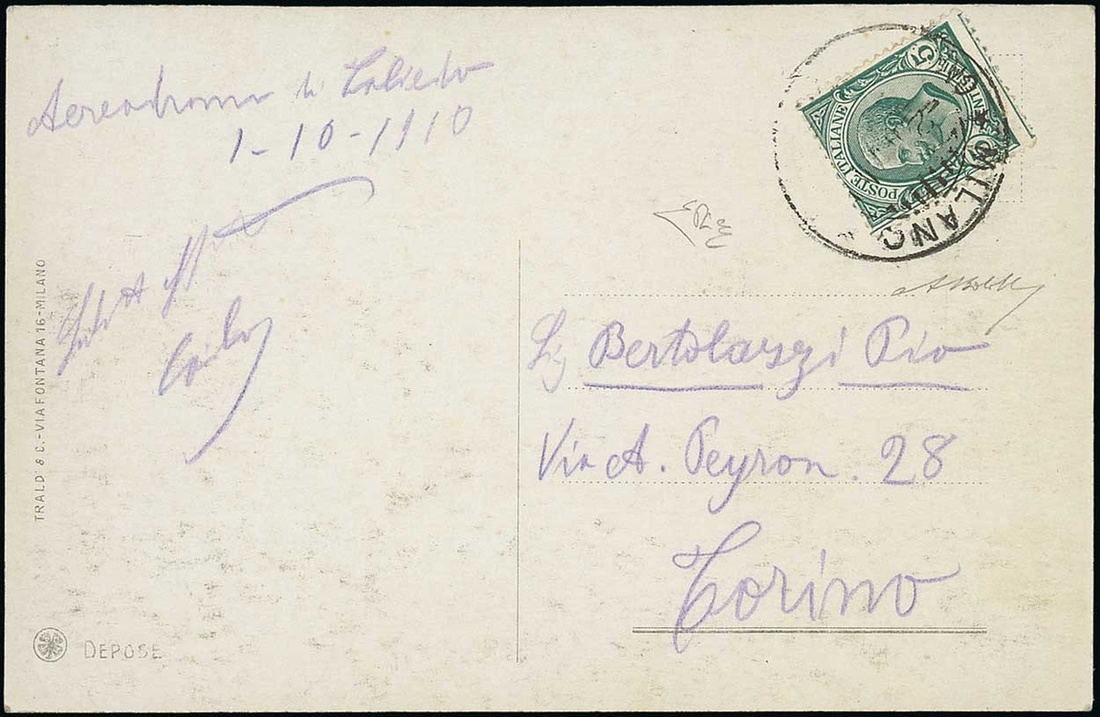 Aereodromo di Taliedo
1-10-1910
Carlo
TRALDI & C.-VIA FONTANA 16-MILANO
DEPOSE
5
POSTE ITALIANE
MILANO
Sig Bertolaszi Pio
Via A. Peyron. 28
Torino